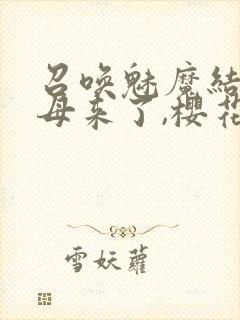 召唤魅魔结
母来了,樱花
雪妖萝